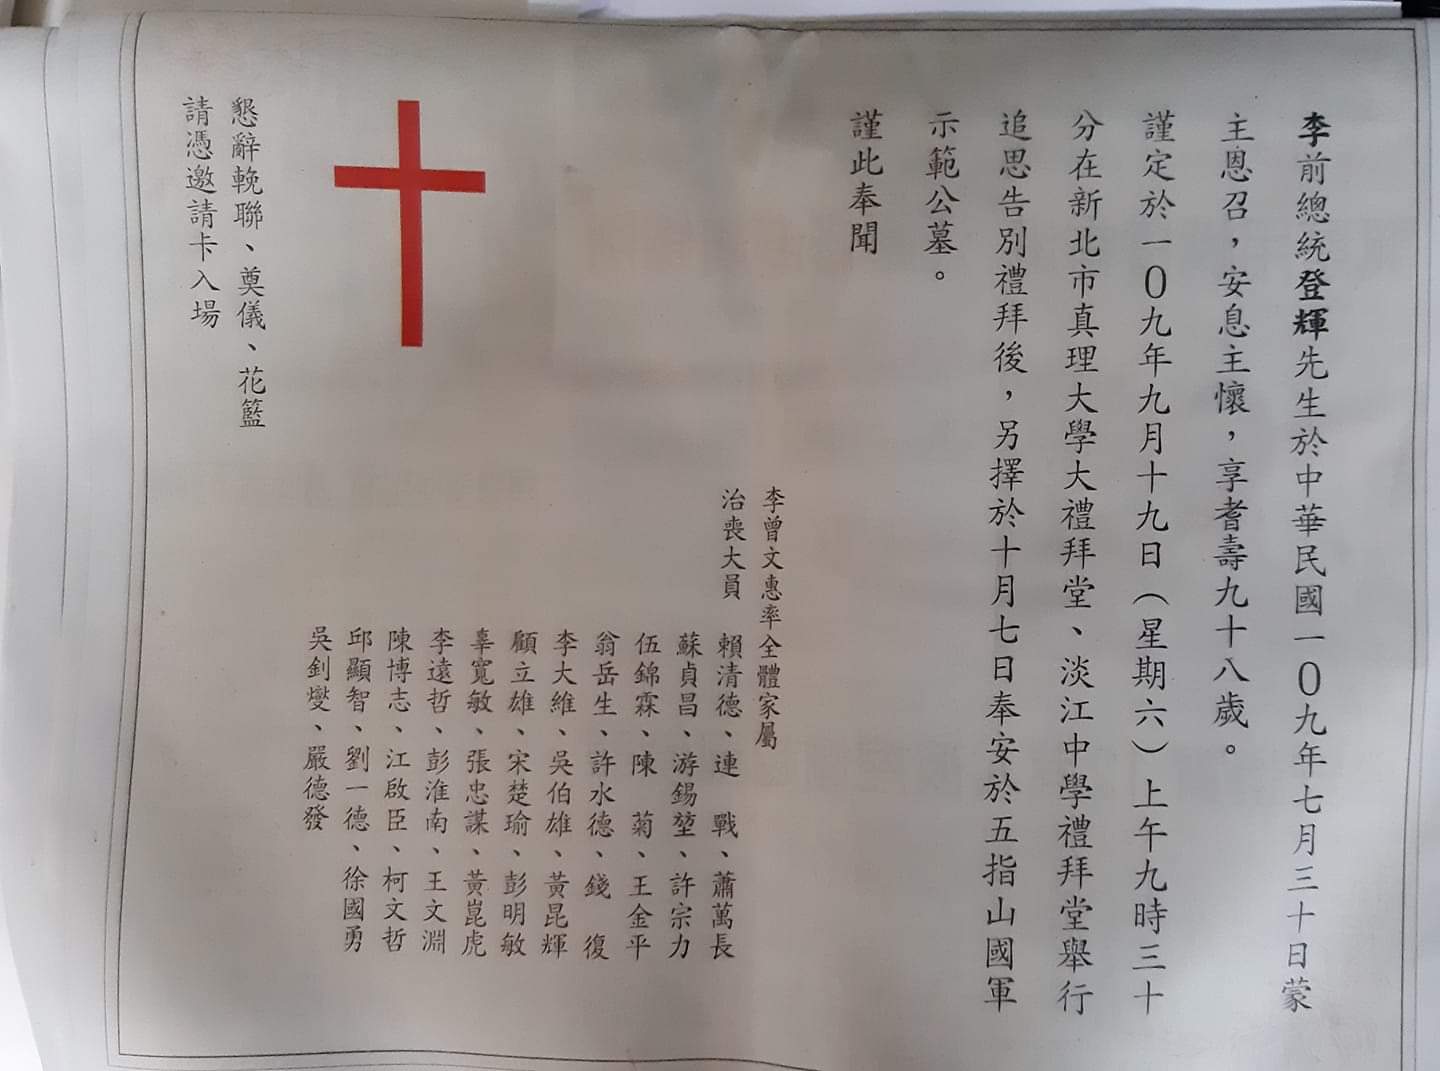 李前總統登輝先生於中華民國一〇九年七月三十日蒙
主恩召，安息主懷，享耆壽九十八歲。
謹定於一〇九年九月十九日（星期六）上午九時三十
分在新北市真理大學大禮拜堂、淡江中學禮拜堂舉行
追思告別禮拜後，另擇於十月七日奉安於五指山國軍
示範公墓。
謹此奉聞
李曾文惠率全體家屬
治喪大員
賴清德、連　戰、蕭萬長
蘇貞昌、游錫堃、許宗力
伍錦霖、陳　菊、王金平
翁岳生、許水德、錢　復
李大維、吳伯雄、黃昆輝
顧立雄、宋楚瑜、彭明敏
辜寬敏、張忠謀、黃崑虎
李遠哲、彭淮南、王文淵
陳博志、江啟臣、柯文哲
邱顯智、劉一德、徐國勇
吳釗燮、嚴德發
懇辭輓聯、奠儀、花籃
請憑邀請卡入場